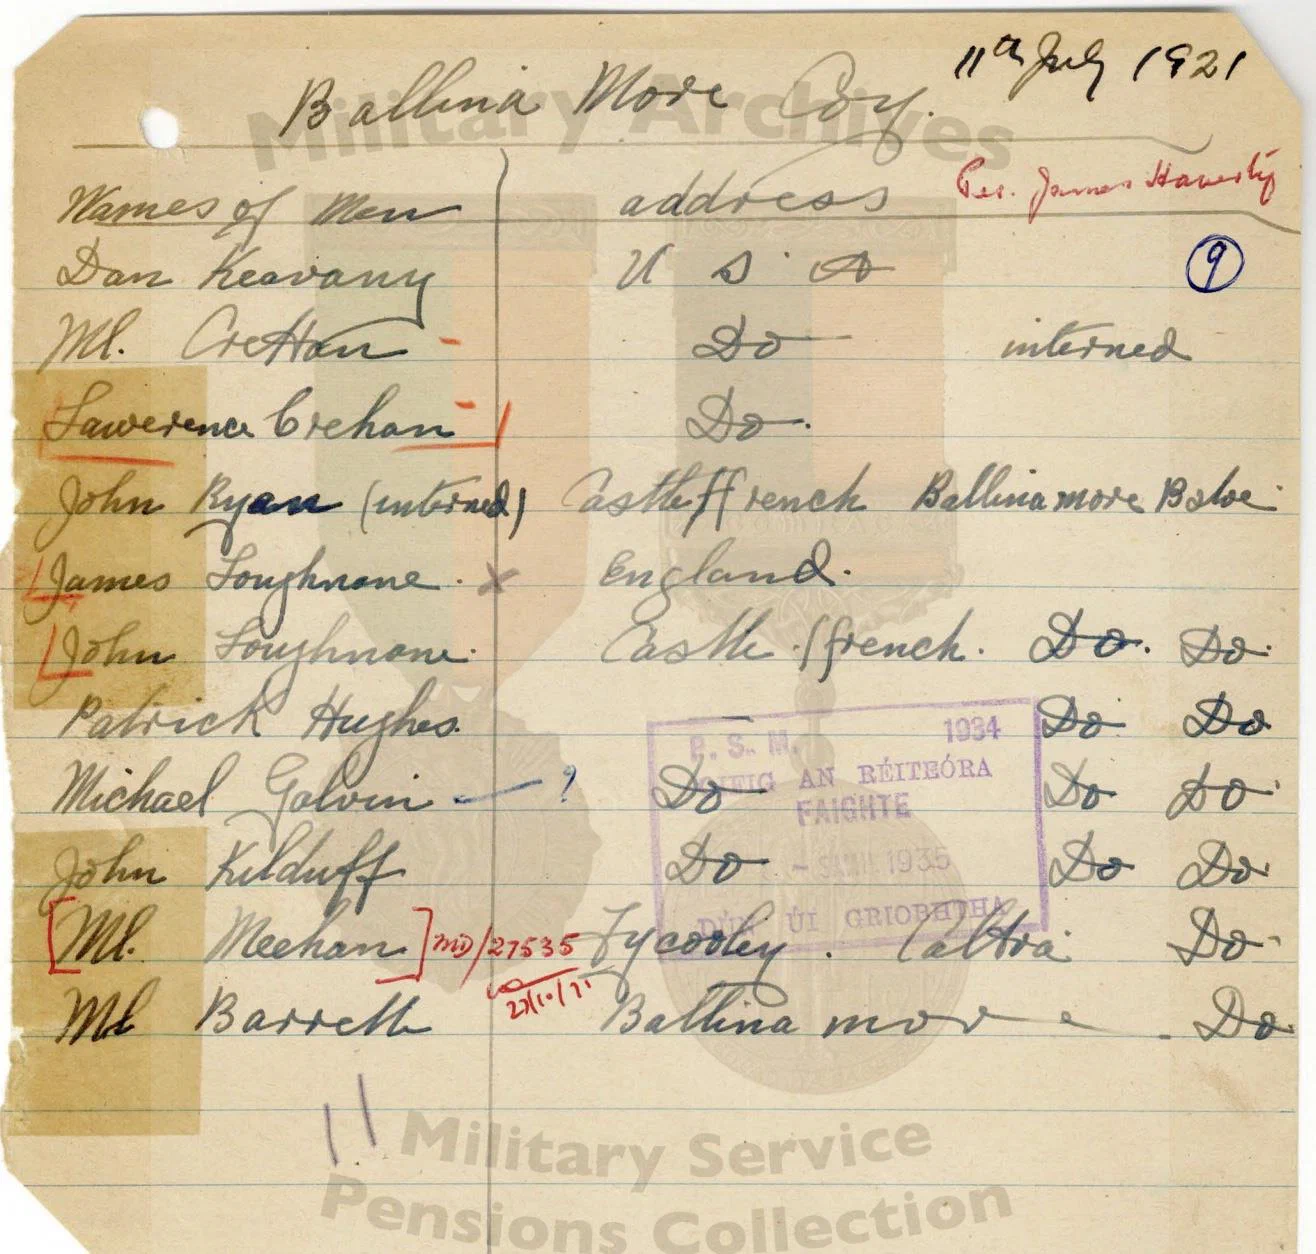 11th July 1921
Ballina More Coy.
Names of Men address Per. James Haverty
Dan Keavany U S A 9
Ml. Crehan - Do interned
Lawerence Crehan - Do.
John Ryan (interned) Castleffrench Ballinamore B.sloe
James Loughnane. x England.
John Loughnane. Castle.ffrench. Do. Do.
Patrick Hughes. — Do Do
Michael Galvin — ? Do Do Do
John Kilduff Do Do Do
[Ml. Meehan] MD/27535 Tycooley. Caltra Do
Ml Barrett Ballinamore Do
11
P. S. M. 1934
OIFIG AN RÉITEÓRA
FAIGHTE
1935
DÚN UÍ GRIOBHTHA
Military Archives
Military Service
Pensions Collection